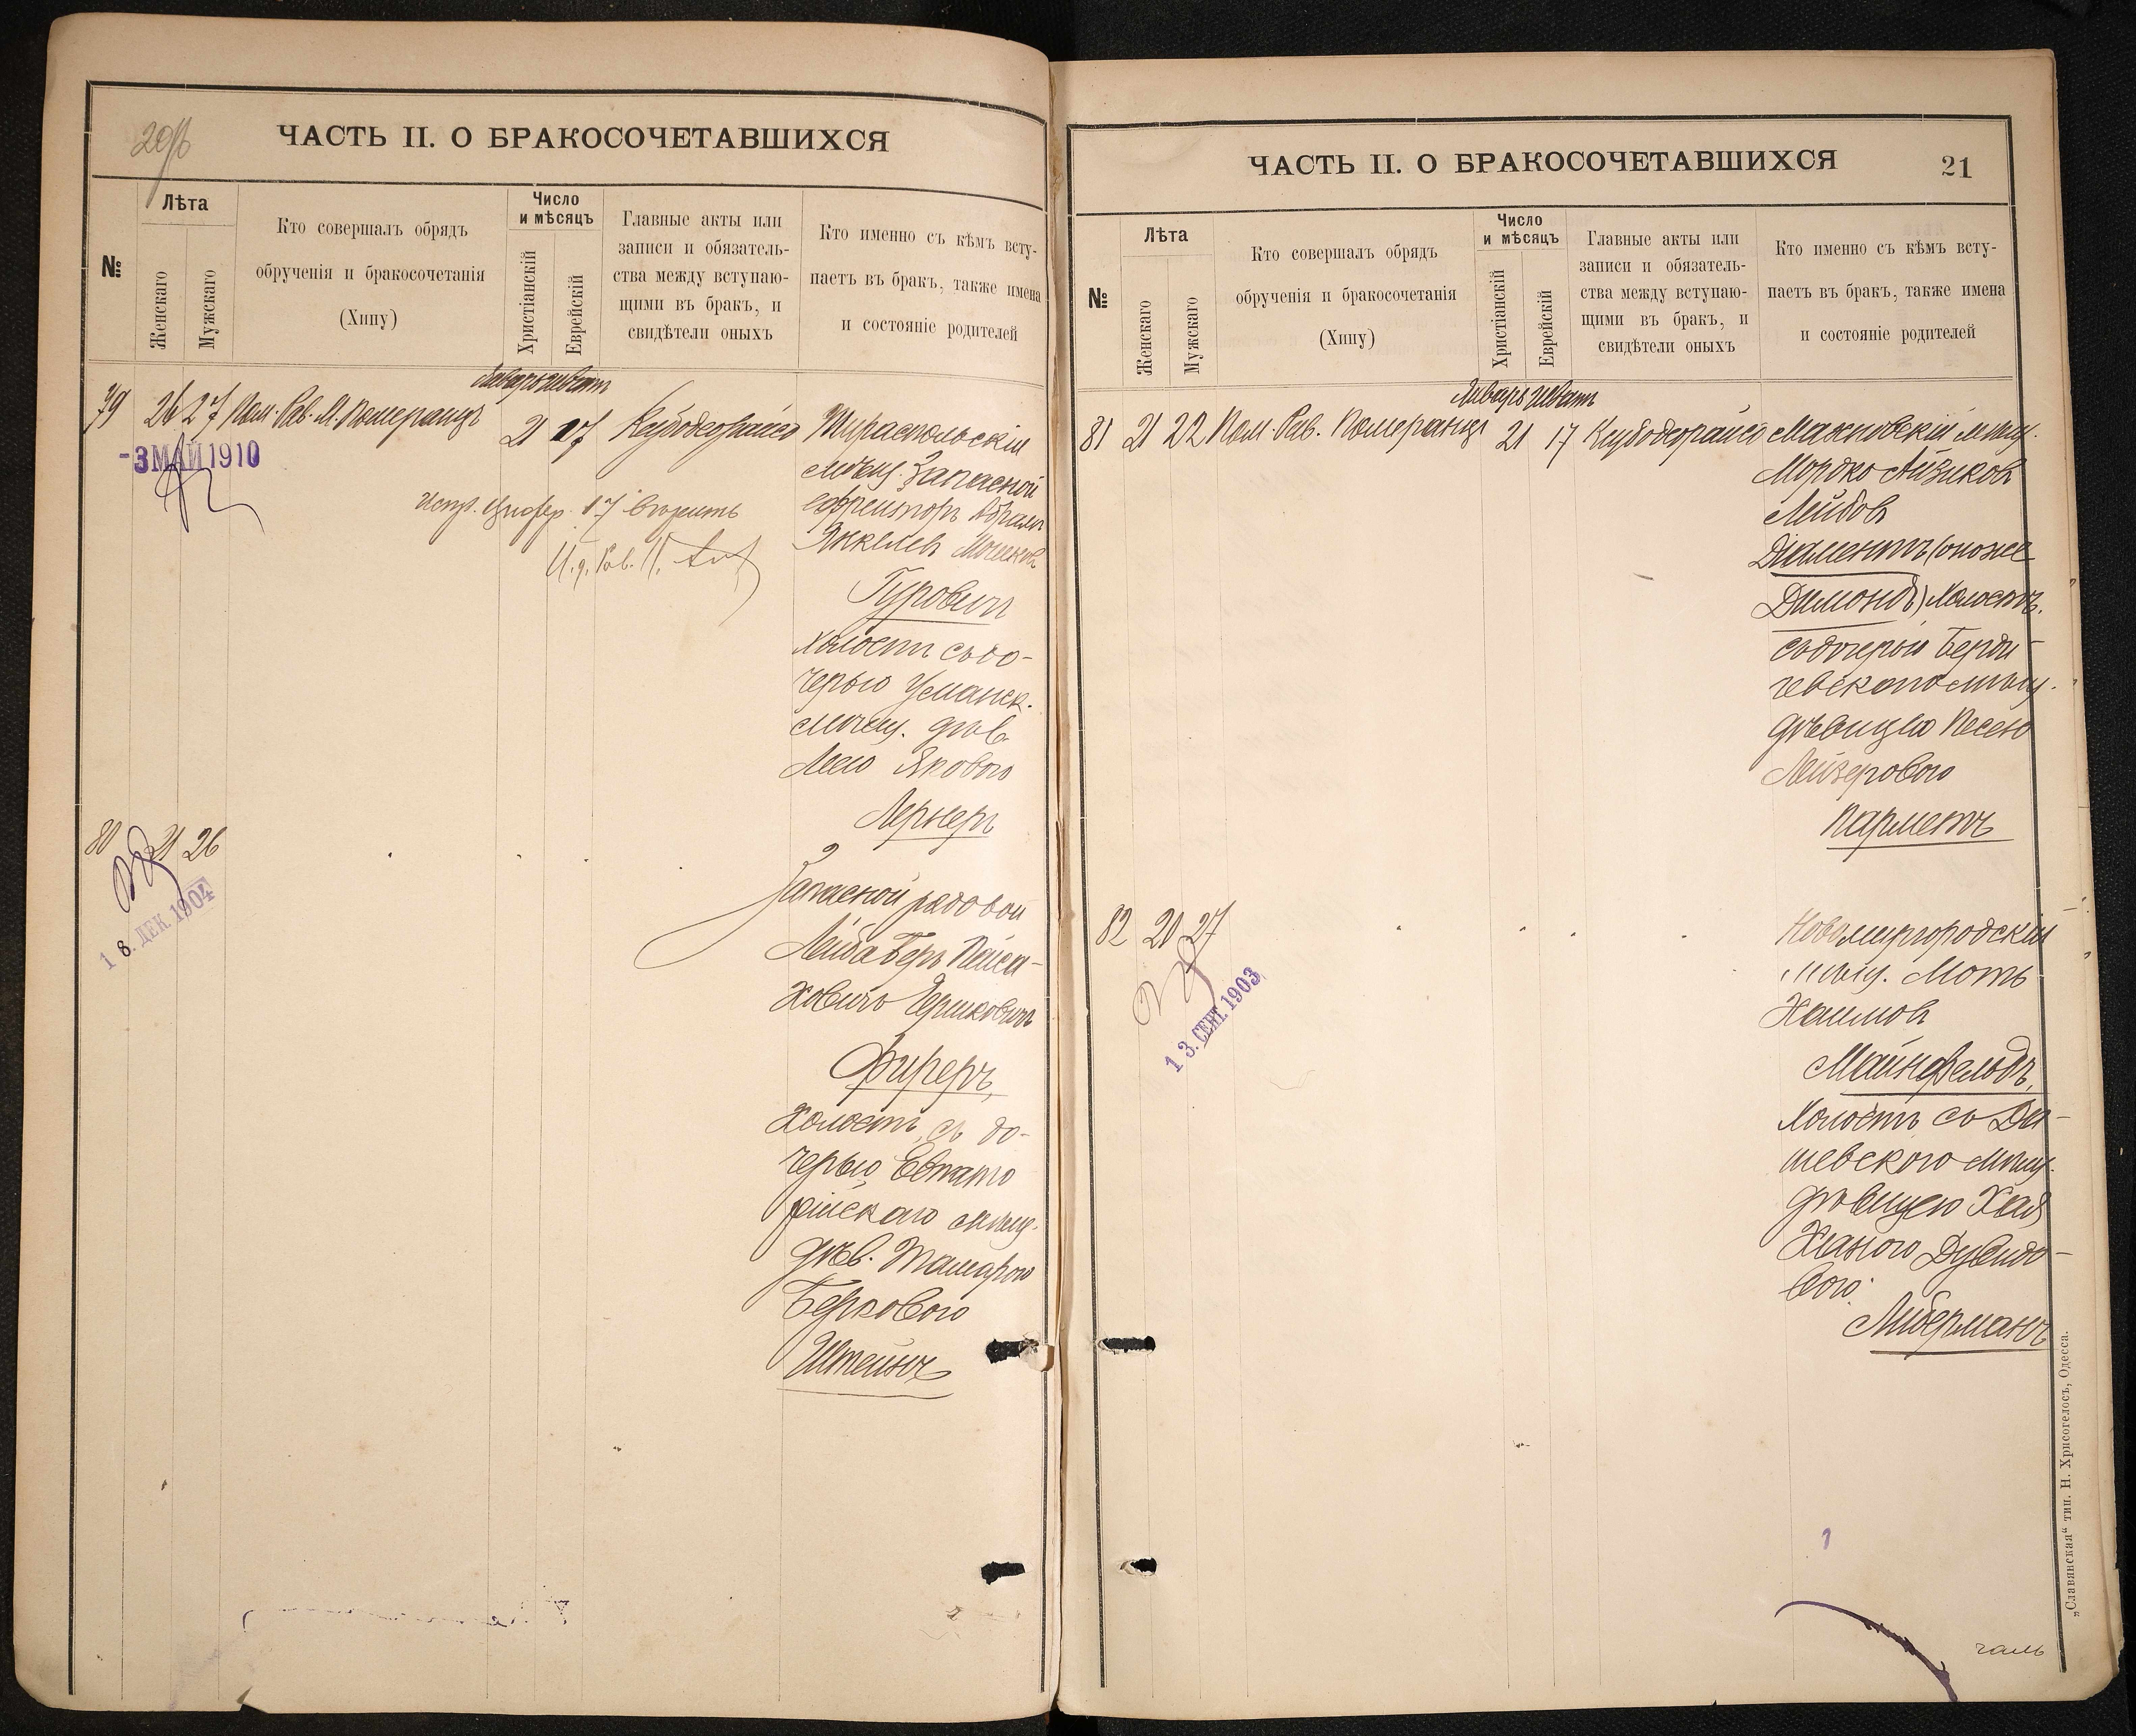 20об
ЧАСТЬ II. О БРАКОСОЧЕТАВШИХСЯ
№
Лѣта
Женскаго
Мужскаго
Кто совершалъ обрядъ
обрученія и бракосочетанія
(Хипу)
Число
и мѣсяцъ
Христіанскій
Еврейскій
Главные акты или
записи и обязатель-
ства между вступаю-
щими въ бракъ, и
свидѣтели оныхъ
Кто именно съ кѣмъ всту-
паетъ въ бракъ, также имена
и состояніе родителей
Январь Шватъ
79 26 27 Пом. Рав. М. Померанцъ 21 17 Тираспольскій
- 3 МАЙ 1910
мѣщ. Запасной
ефрейторъ Абрамъ
Янкелев Мошков
Гуровичъ
холостъ съ до-
черью Уманск.
мѣщ. дѣв.
Лею Яковою
Лернеръ
Испр. цифер. 17 вѣрить
И. д. Рав.
80 21 26
18. ДЕК 1904
Запасной рядовой
Лейба Беръ Пейса-
ховичъ Гершковичъ
Фиреръ,
Холостъ, съ до-
черью Евпато
рійскаго мѣщ.
дѣв. Тамарою
Берковою
Штейнъ
ЧАСТЬ II. О БРАКОСОЧЕТАВШИХСЯ
21
№
Лѣта
Женскаго
Мужскаго
Кто совершалъ обрядъ
обрученія и бракосочетанія
(Хипу)
Число
и мѣсяцъ
Христіанскій
Еврейскій
Главные акты или
записи и обязатель-
ства между вступаю-
щими въ бракъ, и
свидѣтели оныхъ
Кто именно съ кѣмъ всту-
паетъ въ бракъ, также имена
и состояніе родителей
Январь Шватъ
81 21 22 Пом. Рав. Померанцъ 21 17 Махновскій мѣщ.
Мордко Айзиков
Лейбов
Діаментъ (онъ же
Димондъ) холостъ.
съ дочерью Берди-
чевскаго мѣщ.
дѣвицею Песею
Лейзеровою
Парметъ
82 20 27
13. СЕНТ. 1903
Новомиргородскій
мѣщ. Моть
Хаимов
Майнфельдъ,
Холостъ съ Да-
шевского мѣщ.
дѣвицею Хая
Ханою Дувидо-
вою.
Либерманъ
1
чаль
„Славянская“ тип. Н. Хрисогелосъ, Одесса.